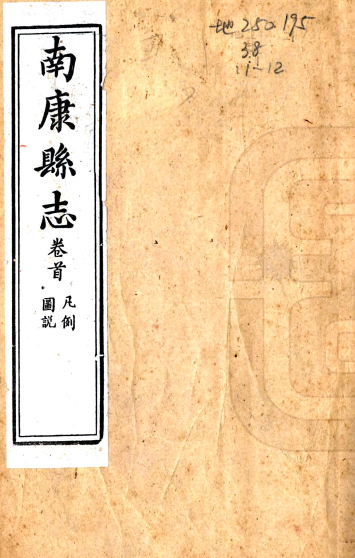 南康縣志
卷首
凡例
圖説
地250.195
38
11-12